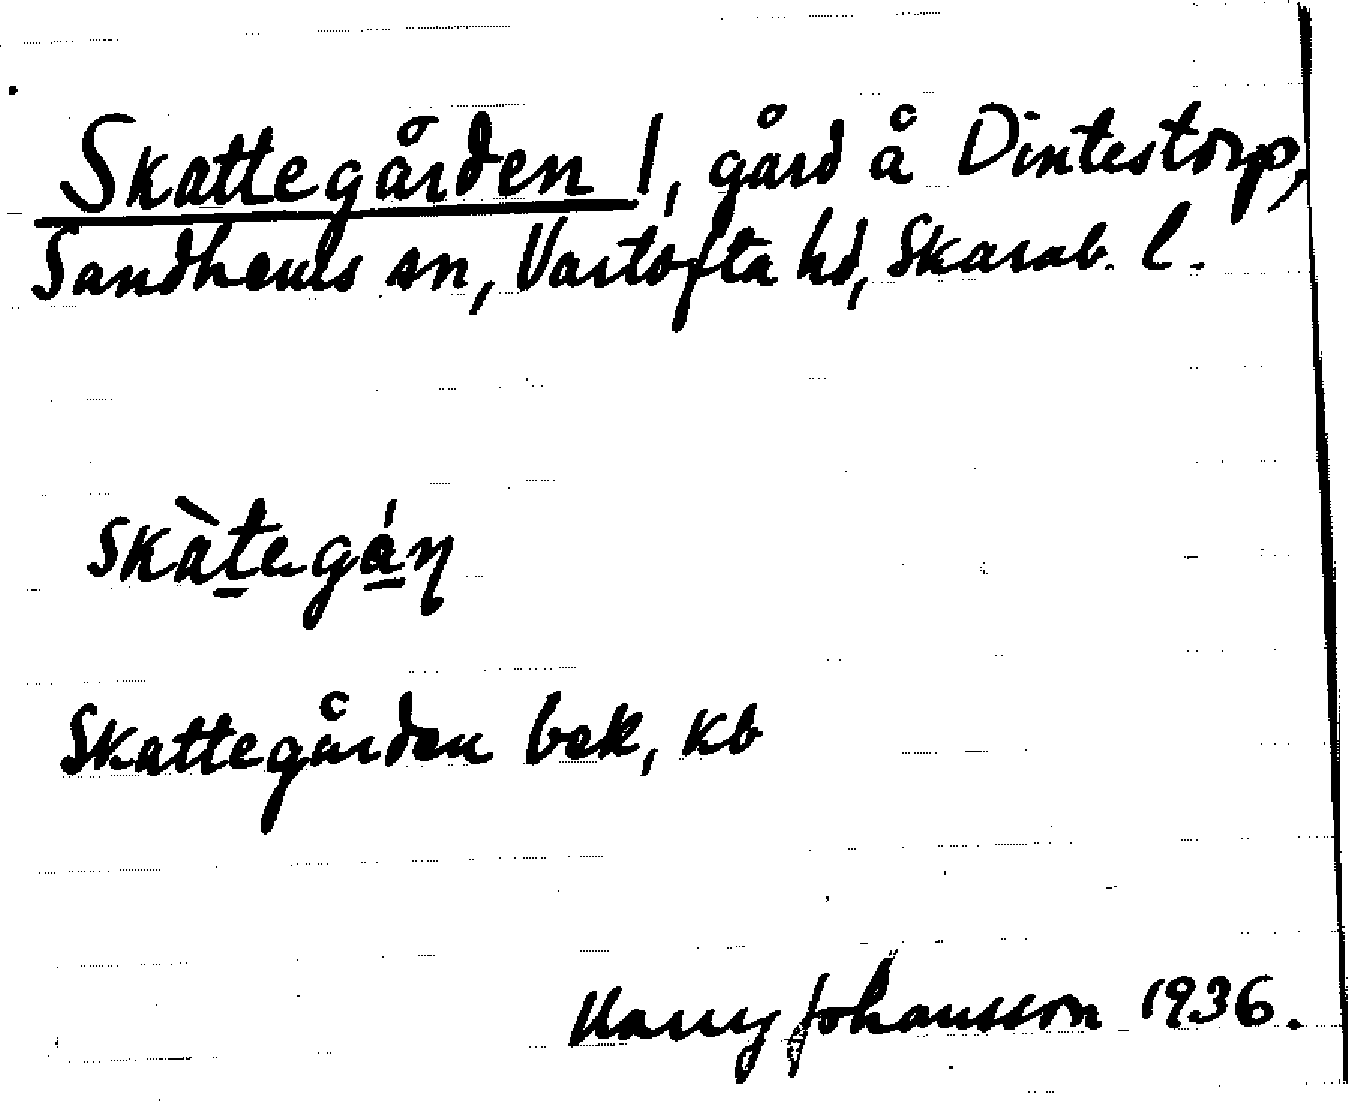 Skattegården 1, gård å Dintestorp,
Sandhems sn, Vartofta hd, Skarab. l.
skàt̲egá̲ɳ
Skattegården bek, kb
Harry Johansson 1936.